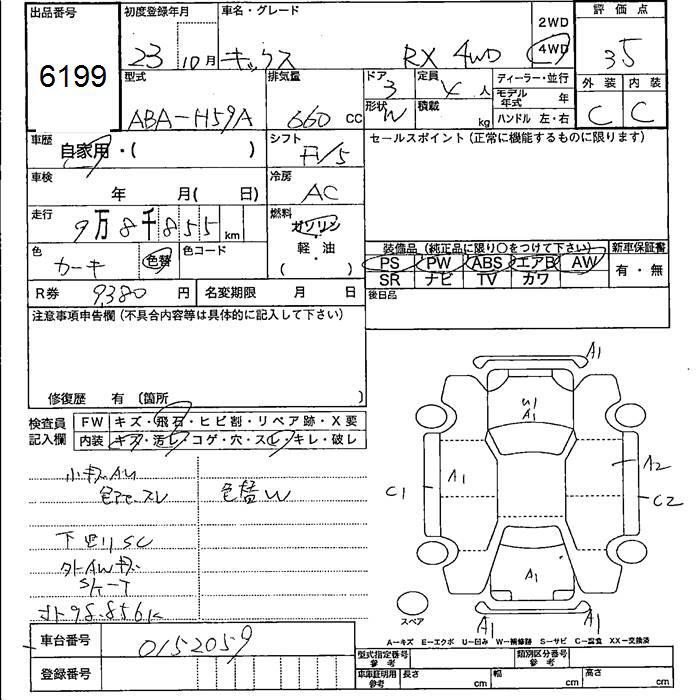 出品番号
6199
初度登録年月
23 10月
車名・グレード
キックス RX 4WD
2WD
4WD
評価点
3.5
外装 内装
C C
型式
ABA-H59A
排気量
660 cc
ドア
3
形状
W
定員
4 人
積載
kg
ディーラー・並行
モデル年式 年
ハンドル 左・右
車歴
自家用・( )
シフト
F1/5
セールスポイント(正常に機能するものに限ります)
車検
年 月( 日)
冷房
AC
走行
9万8千855 km
燃料
ガソリン
軽・油
( )
色
カーキ
色替
色コード
装備品(純正品に限り〇をつけて下さい)
PS PW ABS エアB AW
SR ナビ TV カワ
新車保証書
有・無
R券 9,380 円
名変期限 月 日
後日品
注意事項申告欄(不具合内容等は具体的に記入して下さい)
修復歴 有 (箇所 )
検査員記入欄
FW キズ・飛石・ヒビ割・リペア跡・X要
内装 キズ・汚レ・コゲ・穴・スレ・キレ・破レ
小キズAU
色替W
下回りSC
外AWキズ
98.856K
A1
U1
A1
A1
A2
C1
C2
A1
A1
A1
スペア
A-キズ E-エクボ U-凹み W-補修跡 S-サビ C-腐食 XX-交換済
車台番号
0152059
登録番号
型式指定番号 参考
類別区分番号 参考
車庫証明用 参考
長さ cm
幅 cm
高さ cm